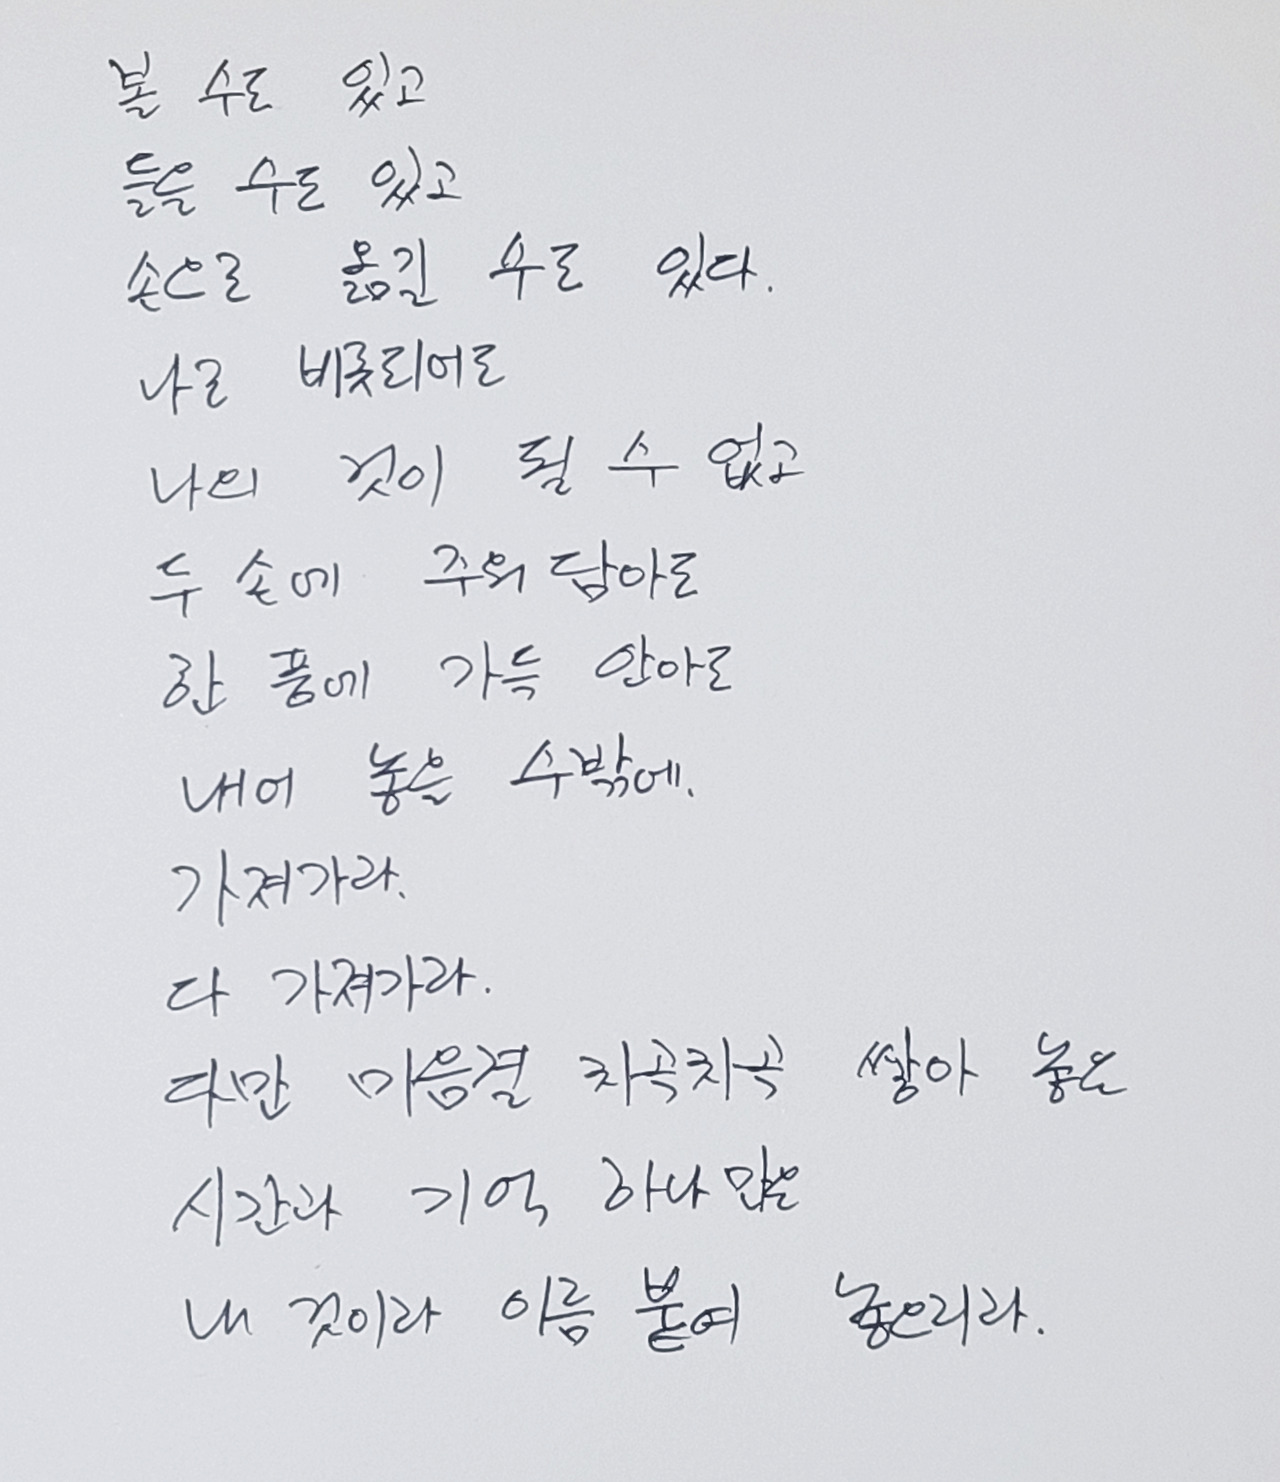 볼 수도 있고
들을 수도 있고
손으로 옮길 수도 있다.
나로 비롯되어도
나의 것이 될 수 없고
두 손에 주워 담아도
한 품에 가득 안아도
내어 놓을 수밖에.
가져가라.
다 가져가라.
다만 마음결 차곡차곡 쌓아 놓은
시간과 기억 하나만은
내 것이라 이름 붙여 놓으리라.